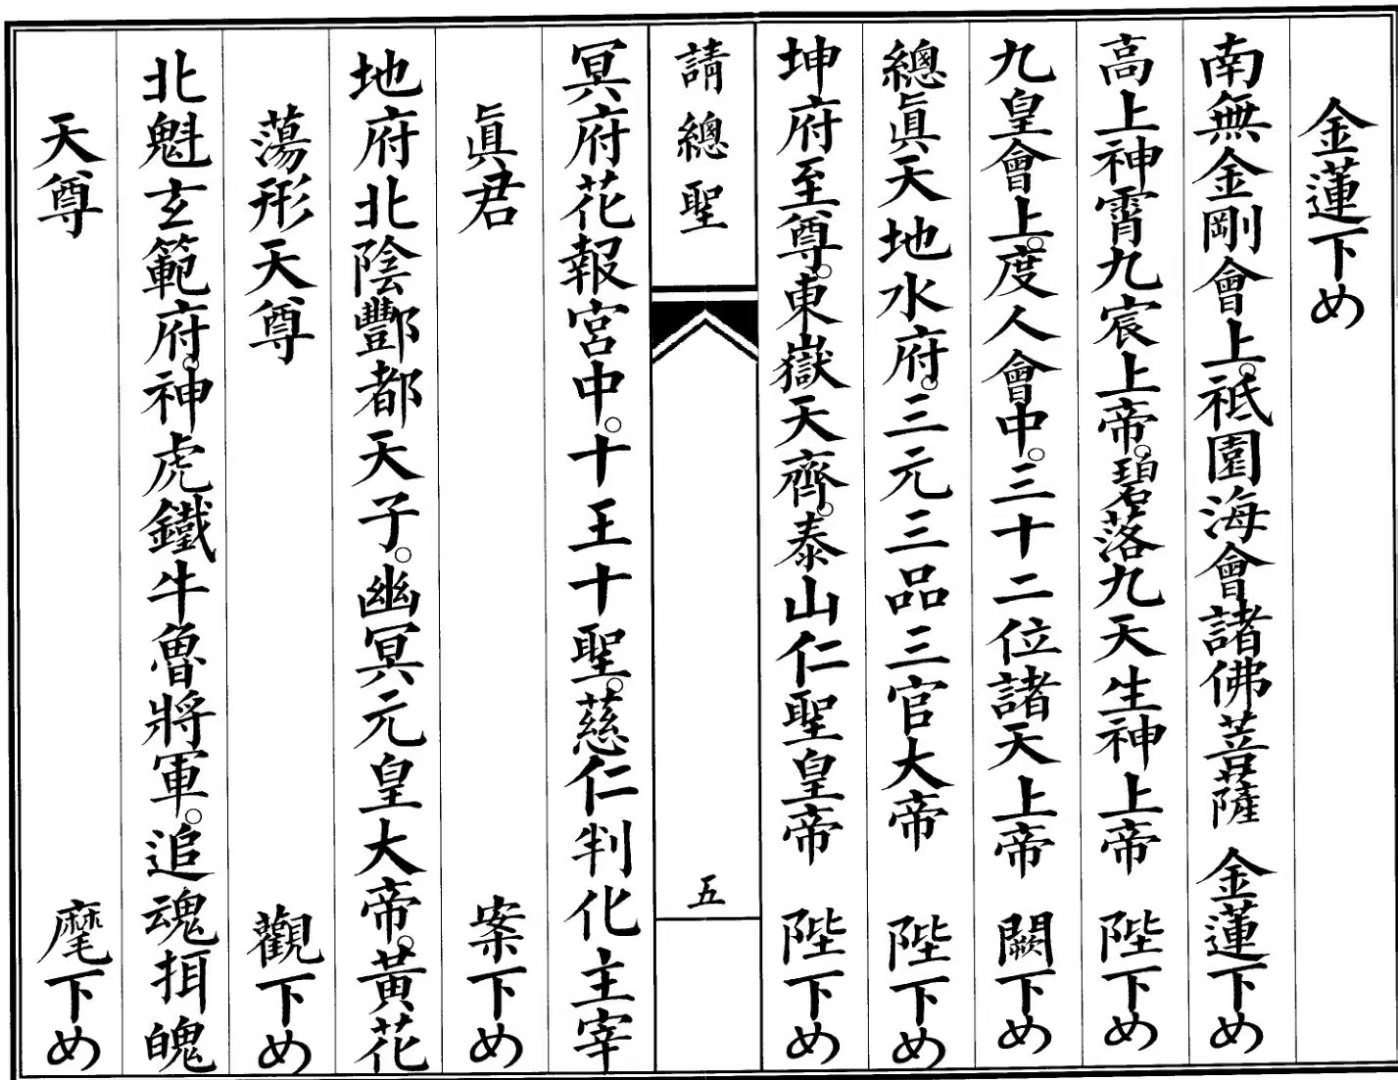 金蓮下め
南無金剛會上。祇園海會諸佛菩薩 金蓮下め
高上神霄九宸上帝。碧落九天生神上帝 陛下め
九皇會上。度人會中。三十二位諸天上帝 闕下め
總眞天地水府。三元三品三官大帝 陛下め
坤府至尊。東嶽天齊。泰山仁聖皇帝 陛下め
請總聖 五
冥府花報宮中。十王十聖。慈仁判化主宰
眞君 案下め
地府北陰酆都天子。幽冥元皇大帝。黃花
蕩形天尊 觀下め
北魁玄範府。神虎鐵牛魯將軍。追魂摄魄
天尊 麾下め